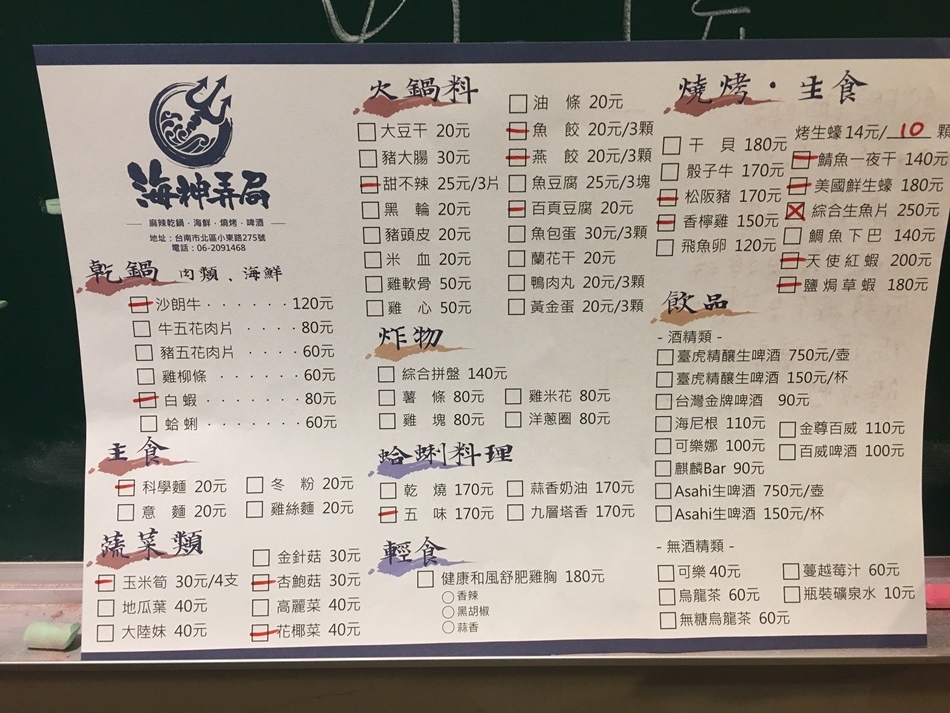 海神弄局
麻辣乾鍋·海鮮·燒烤·啤酒
地址：台南市北區小東路275號
電話：06-2091468
乾鍋 肉類、海鮮
沙朗牛······120元
牛五花肉片····80元
豬五花肉片····60元
雞柳條······60元
白蝦·······80元
蛤蜊·······60元
主食
科學麵 20元
冬粉 20元
意麵 20元
雞絲麵 20元
蔬菜類
金針菇 30元
玉米筍 30元/4支
杏鮑菇 30元
地瓜葉 40元
高麗菜 40元
大陸妹 40元
花椰菜 40元
火鍋料
大豆干 20元
豬大腸 30元
甜不辣 25元/3片
黑輪 20元
豬頭皮 20元
米血 20元
雞軟骨 50元
雞心 50元
油條 20元
魚餃 20元/3顆
燕餃 20元/3顆
魚豆腐 25元/3塊
百頁豆腐 20元
魚包蛋 30元/3顆
蘭花干 20元
鴨肉丸 20元/3顆
黃金蛋 20元/3顆
炸物
綜合拼盤 140元
薯條 80元
雞米花 80元
雞塊 80元
洋蔥圈 80元
蛤蜊料理
乾燒 170元
蒜香奶油 170元
五味 170元
九層塔香 170元
輕食
健康和風舒肥雞胸 180元
香辣
黑胡椒
蒜香
燒烤·生食
干貝 180元
骰子牛 170元
松阪豬 170元
香檸雞 150元
飛魚卵 120元
烤生蠔14元/ 10 顆
鯖魚一夜干 140元
美國鮮生蠔 180元
綜合生魚片 250元
鯛魚下巴 140元
天使紅蝦 200元
鹽焗草蝦 180元
飲品
- 酒精類 -
臺虎精釀生啤酒 750元/壺
臺虎精釀生啤酒 150元/杯
台灣金牌啤酒 90元
海尼根 110元
金尊百威 110元
可樂娜 100元
百威啤酒 100元
麒麟Bar 90元
Asahi生啤酒 750元/壺
Asahi生啤酒 150元/杯
- 無酒精類 -
可樂 40元
蔓越莓汁 60元
烏龍茶 60元
瓶裝礦泉水 10元
無糖烏龍茶 60元